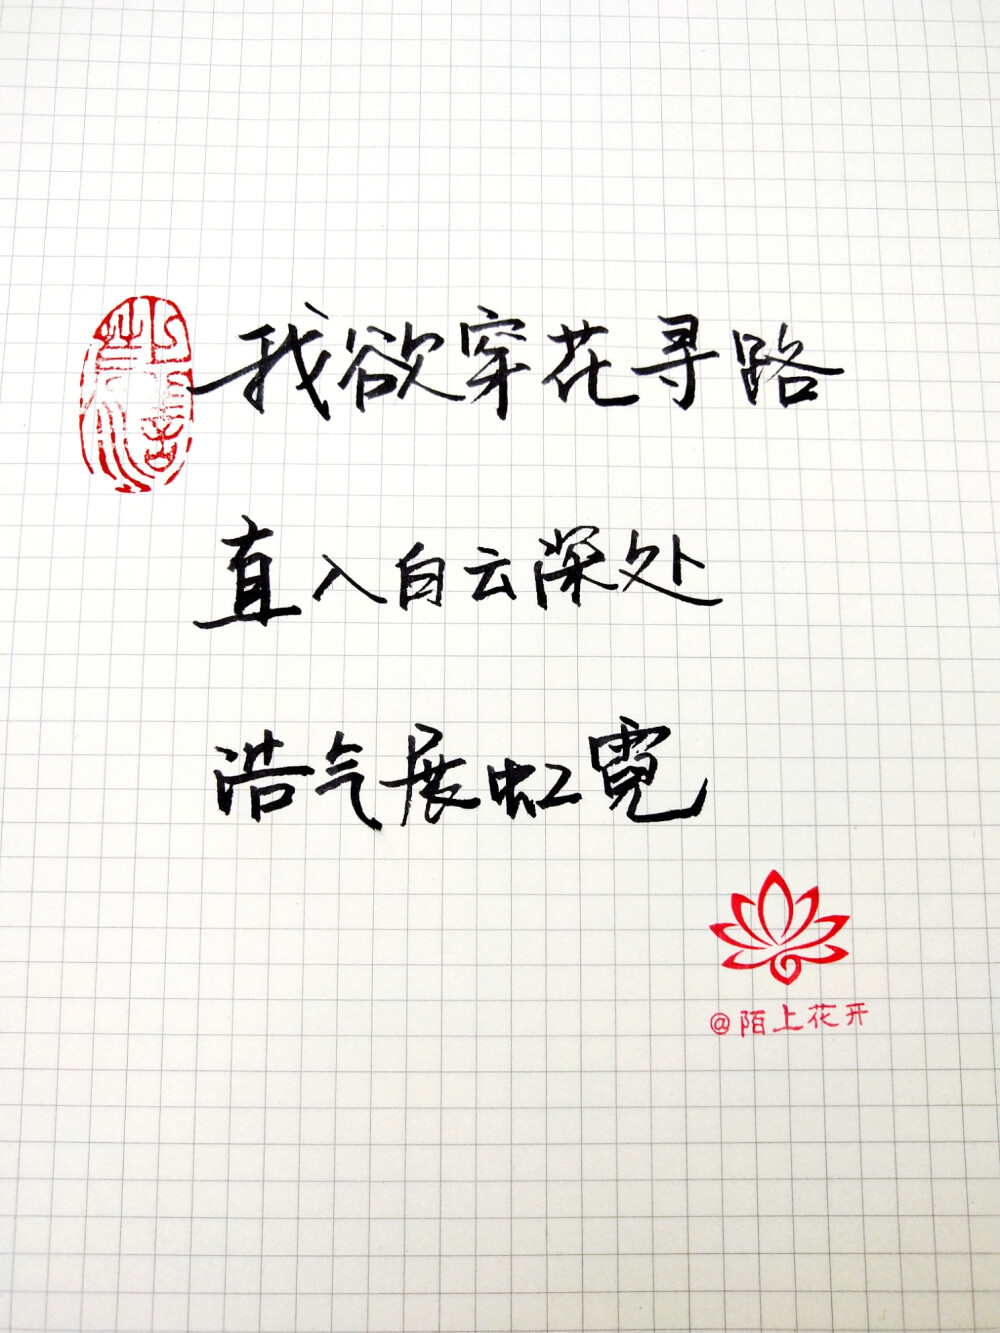 我欲穿花寻路
直入白云深处
浩气展虹霓
@陌上花开